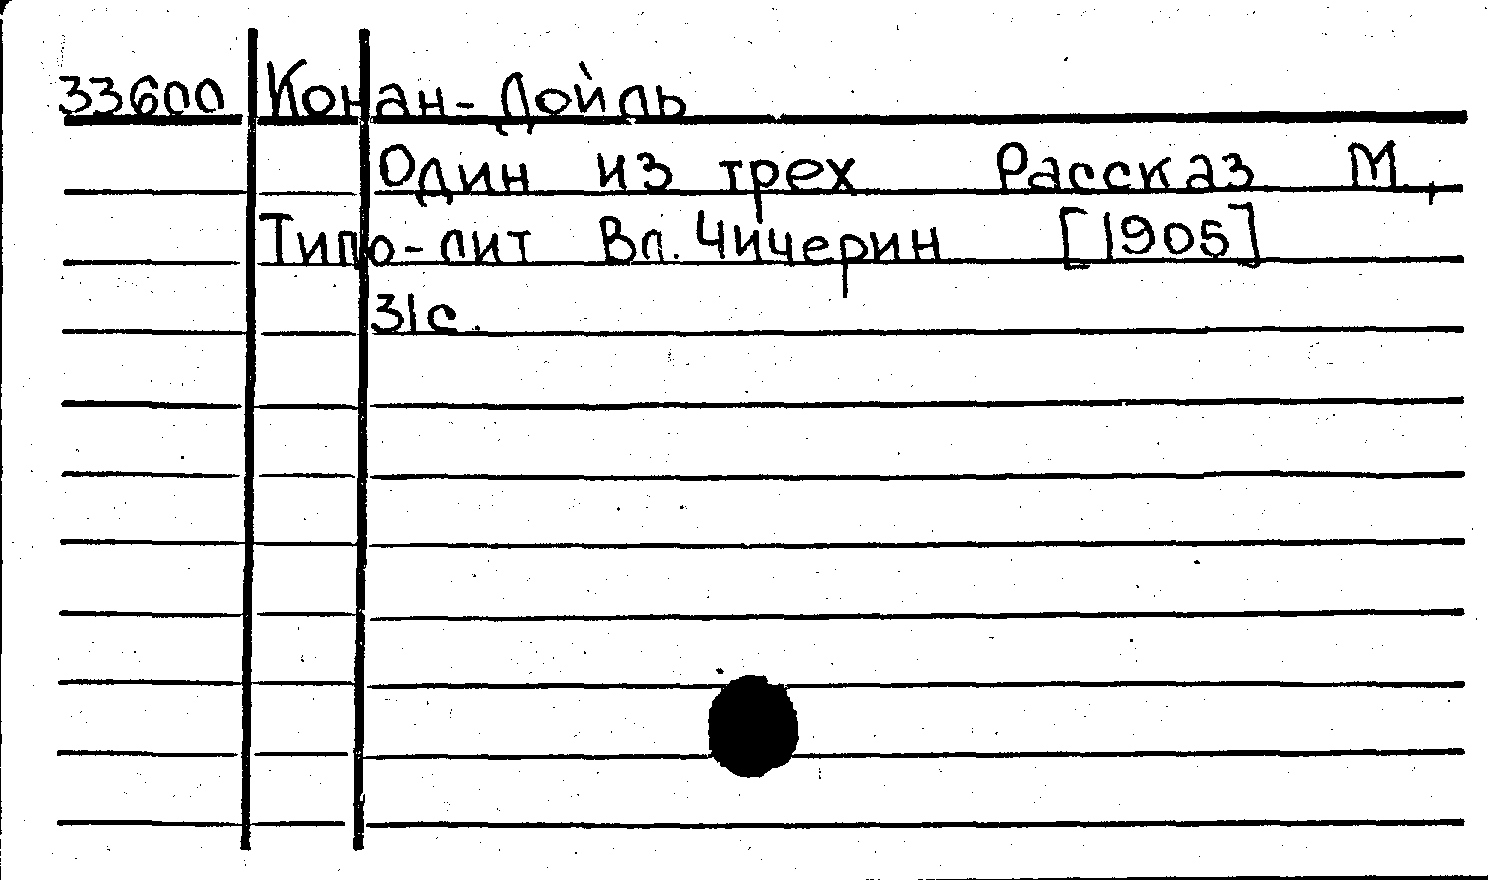 33600 Конан-Дойль
Один из трех Рассказ М.,
Типо-лит Вл. Чичерин [1905]
31с.